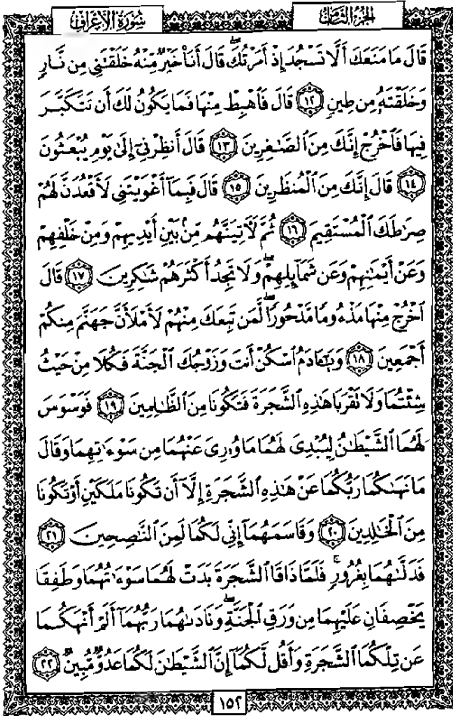 الجزء الثامن
سورة الأعراف
قَالَ مَا مَنَعَكَ أَلَّا تَسْجُدَ إِذْ أَمَرْتُكَ قَالَ أَنَا۠ خَيْرٌ مِّنْهُ خَلَقْتَنِى مِن نَّارٍ
وَخَلَقْتَهُۥ مِن طِينٍ ١٢ قَالَ فَٱهْبِطْ مِنْهَا فَمَا يَكُونُ لَكَ أَن تَتَكَبَّرَ
فِيهَا فَٱخْرُجْ إِنَّكَ مِنَ ٱلصَّـٰغِرِينَ ١٣ قَالَ أَنظِرْنِىٓ إِلَىٰ يَوْمِ يُبْعَثُونَ
١٤ قَالَ إِنَّكَ مِنَ ٱلْمُنظَرِينَ ١٥ قَالَ فَبِمَآ أَغْوَيْتَنِى لَأَقْعُدَنَّ لَهُمْ
صِرَٰطَكَ ٱلْمُسْتَقِيمَ ١٦ ثُمَّ لَـَٔاتِيَنَّهُم مِّنۢ بَيْنِ أَيْدِيهِمْ وَمِنْ خَلْفِهِمْ
وَعَنْ أَيْمَـٰنِهِمْ وَعَن شَمَآئِلِهِمْ وَلَا تَجِدُ أَكْثَرَهُمْ شَـٰكِرِينَ ١٧ قَالَ
ٱخْرُجْ مِنْهَا مَذْءُومًا مَّدْحُورًا لَّمَن تَبِعَكَ مِنْهُمْ لَأَمْلَأَنَّ جَهَنَّمَ مِنكُمْ
أَجْمَعِينَ ١٨ وَيَـٰٓـَٔادَمُ ٱسْكُنْ أَنتَ وَزَوْجُكَ ٱلْجَنَّةَ فَكُلَا مِنْ حَيْثُ
شِئْتُمَا وَلَا تَقْرَبَا هَـٰذِهِ ٱلشَّجَرَةَ فَتَكُونَا مِنَ ٱلظَّـٰلِمِينَ ١٩ فَوَسْوَسَ
لَهُمَا ٱلشَّيْطَـٰنُ لِيُبْدِىَ لَهُمَا مَا وُۥرِىَ عَنْهُمَا مِن سَوْءَٰتِهِمَا وَقَالَ
مَا نَهَىٰكُمَا رَبُّكُمَا عَنْ هَـٰذِهِ ٱلشَّجَرَةِ إِلَّآ أَن تَكُونَا مَلَكَيْنِ أَوْ تَكُونَا
مِنَ ٱلْخَـٰلِدِينَ ٢٠ وَقَاسَمَهُمَآ إِنِّى لَكُمَا لَمِنَ ٱلنَّـٰصِحِينَ ٢١
فَدَلَّىٰهُمَا بِغُرُورٍ فَلَمَّا ذَاقَا ٱلشَّجَرَةَ بَدَتْ لَهُمَا سَوْءَٰتُهُمَا وَطَفِقَا
يَخْصِفَانِ عَلَيْهِمَا مِن وَرَقِ ٱلْجَنَّةِ وَنَادَىٰهُمَا رَبُّهُمَآ أَلَمْ أَنْهَكُمَا
عَن تِلْكُمَا ٱلشَّجَرَةِ وَأَقُل لَّكُمَآ إِنَّ ٱلشَّيْطَـٰنَ لَكُمَا عَدُوٌّ مُّبِينٌ ٢٢
١٥٢